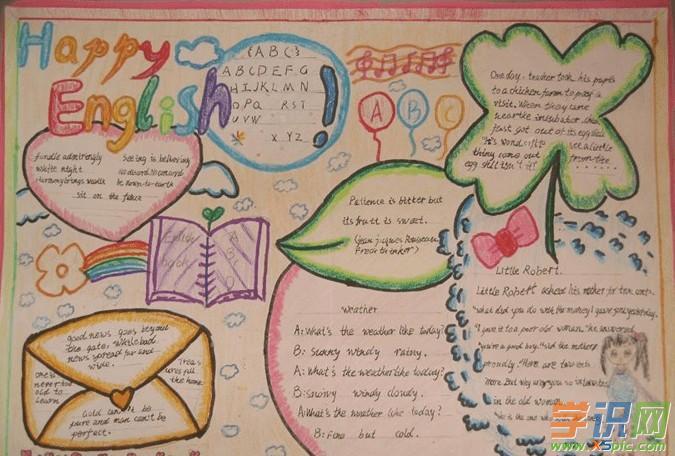 Happy
English
{A B C}
A B C D E F. G
H I J K L M N
O P Q R S T
U V W
X Y Z
!
A B C
One day. teacher took his pupils
to a chicken farm to pay a
visit. When they came
near the incubator. chick
just got out of its egg shell
see a little
thing come out from the
egg shell
Seeing is believing
be down-to-earth
white night
Harmony brings wealth
sit on the fence
Patience is bitter but
its fruit is sweet.
(Jean Jacques Rousseau
French thinker)
English A
book B
C
D
weather
A: What's the weather like today?
B: Sunny windy rainy.
A: What's the weather like today?
B: snowy windy cloudy.
A: What's the weather like today?
B: Fine but cold.
Little Robert.
Little Robert asked his mother for two cents.
"What did you do with the money I gave you yesterday.
"I gave it to a poor old woman," he answered
"you're a good boy," said the mother
proudly. "Here are two cents
more. But why are you so interested
in the old woman
"She is the one who
good news goes beyond
the gate, while bad
news spread far and
wide.
One is
never too
old to
learn
Treas
ures fill
the home
Gold can't be
pure and man can't be
perfect.
学识网
www.xspic.com